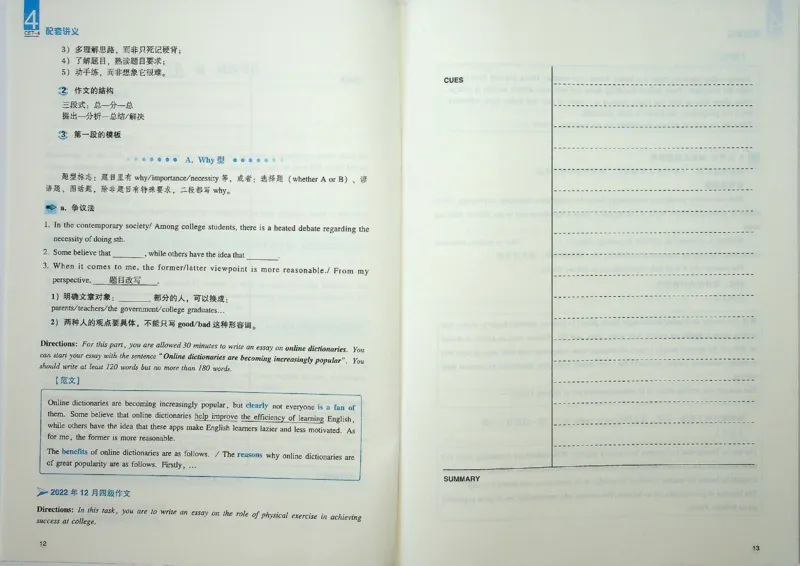 4
CET-4
配套讲义
3）多理解思路，而非只死记硬背；
4）了解题目，熟读题目要求；
5）动手练，而非想象它很难。
2 作文的结构
三段式：总—分—总
提出—分析—总结/解决
3 第一段的模板
A. Why 型
题型标志：题目里有 why/importance/necessity 等，或者：选择题（whether A or B）、谚
语题，图话题，除非题目有特殊要求，二段都写 why。
a. 争议法
1. In the contemporary society/ Among college students, there is a heated debate regarding the
necessity of doing sth.
2. Some believe that ________, while others have the idea that ________.
3. When it comes to me, the former/latter viewpoint is more reasonable./ From my
perspective, 题目改写.
1）明确文章对象：________ 部分的人，可以换成：
parents/teachers/the government/college graduates…
2）两种人的观点要具体，不能只写 good/bad 这种形容词。
Directions: For this part, you are allowed 30 minutes to write an essay on online dictionaries. You
can start your essay with the sentence "Online dictionaries are becoming increasingly popular". You
should write at least 120 words but no more than 180 words.
【范文】
Online dictionaries are becoming increasingly popular, but clearly not everyone is a fan of
them. Some believe that online dictionaries help improve the efficiency of learning English,
while others have the idea that these apps make English learners lazier and less motivated. As
for me, the former is more reasonable.
The benefits of online dictionaries are as follows. / The reasons why online dictionaries are
of great popularity are as follows. Firstly, …
2022 年 12 月四级作文
Directions: In this task, you are to write an essay on the role of physical exercise in achieving
success at college.
12
CUES
SUMMARY
13